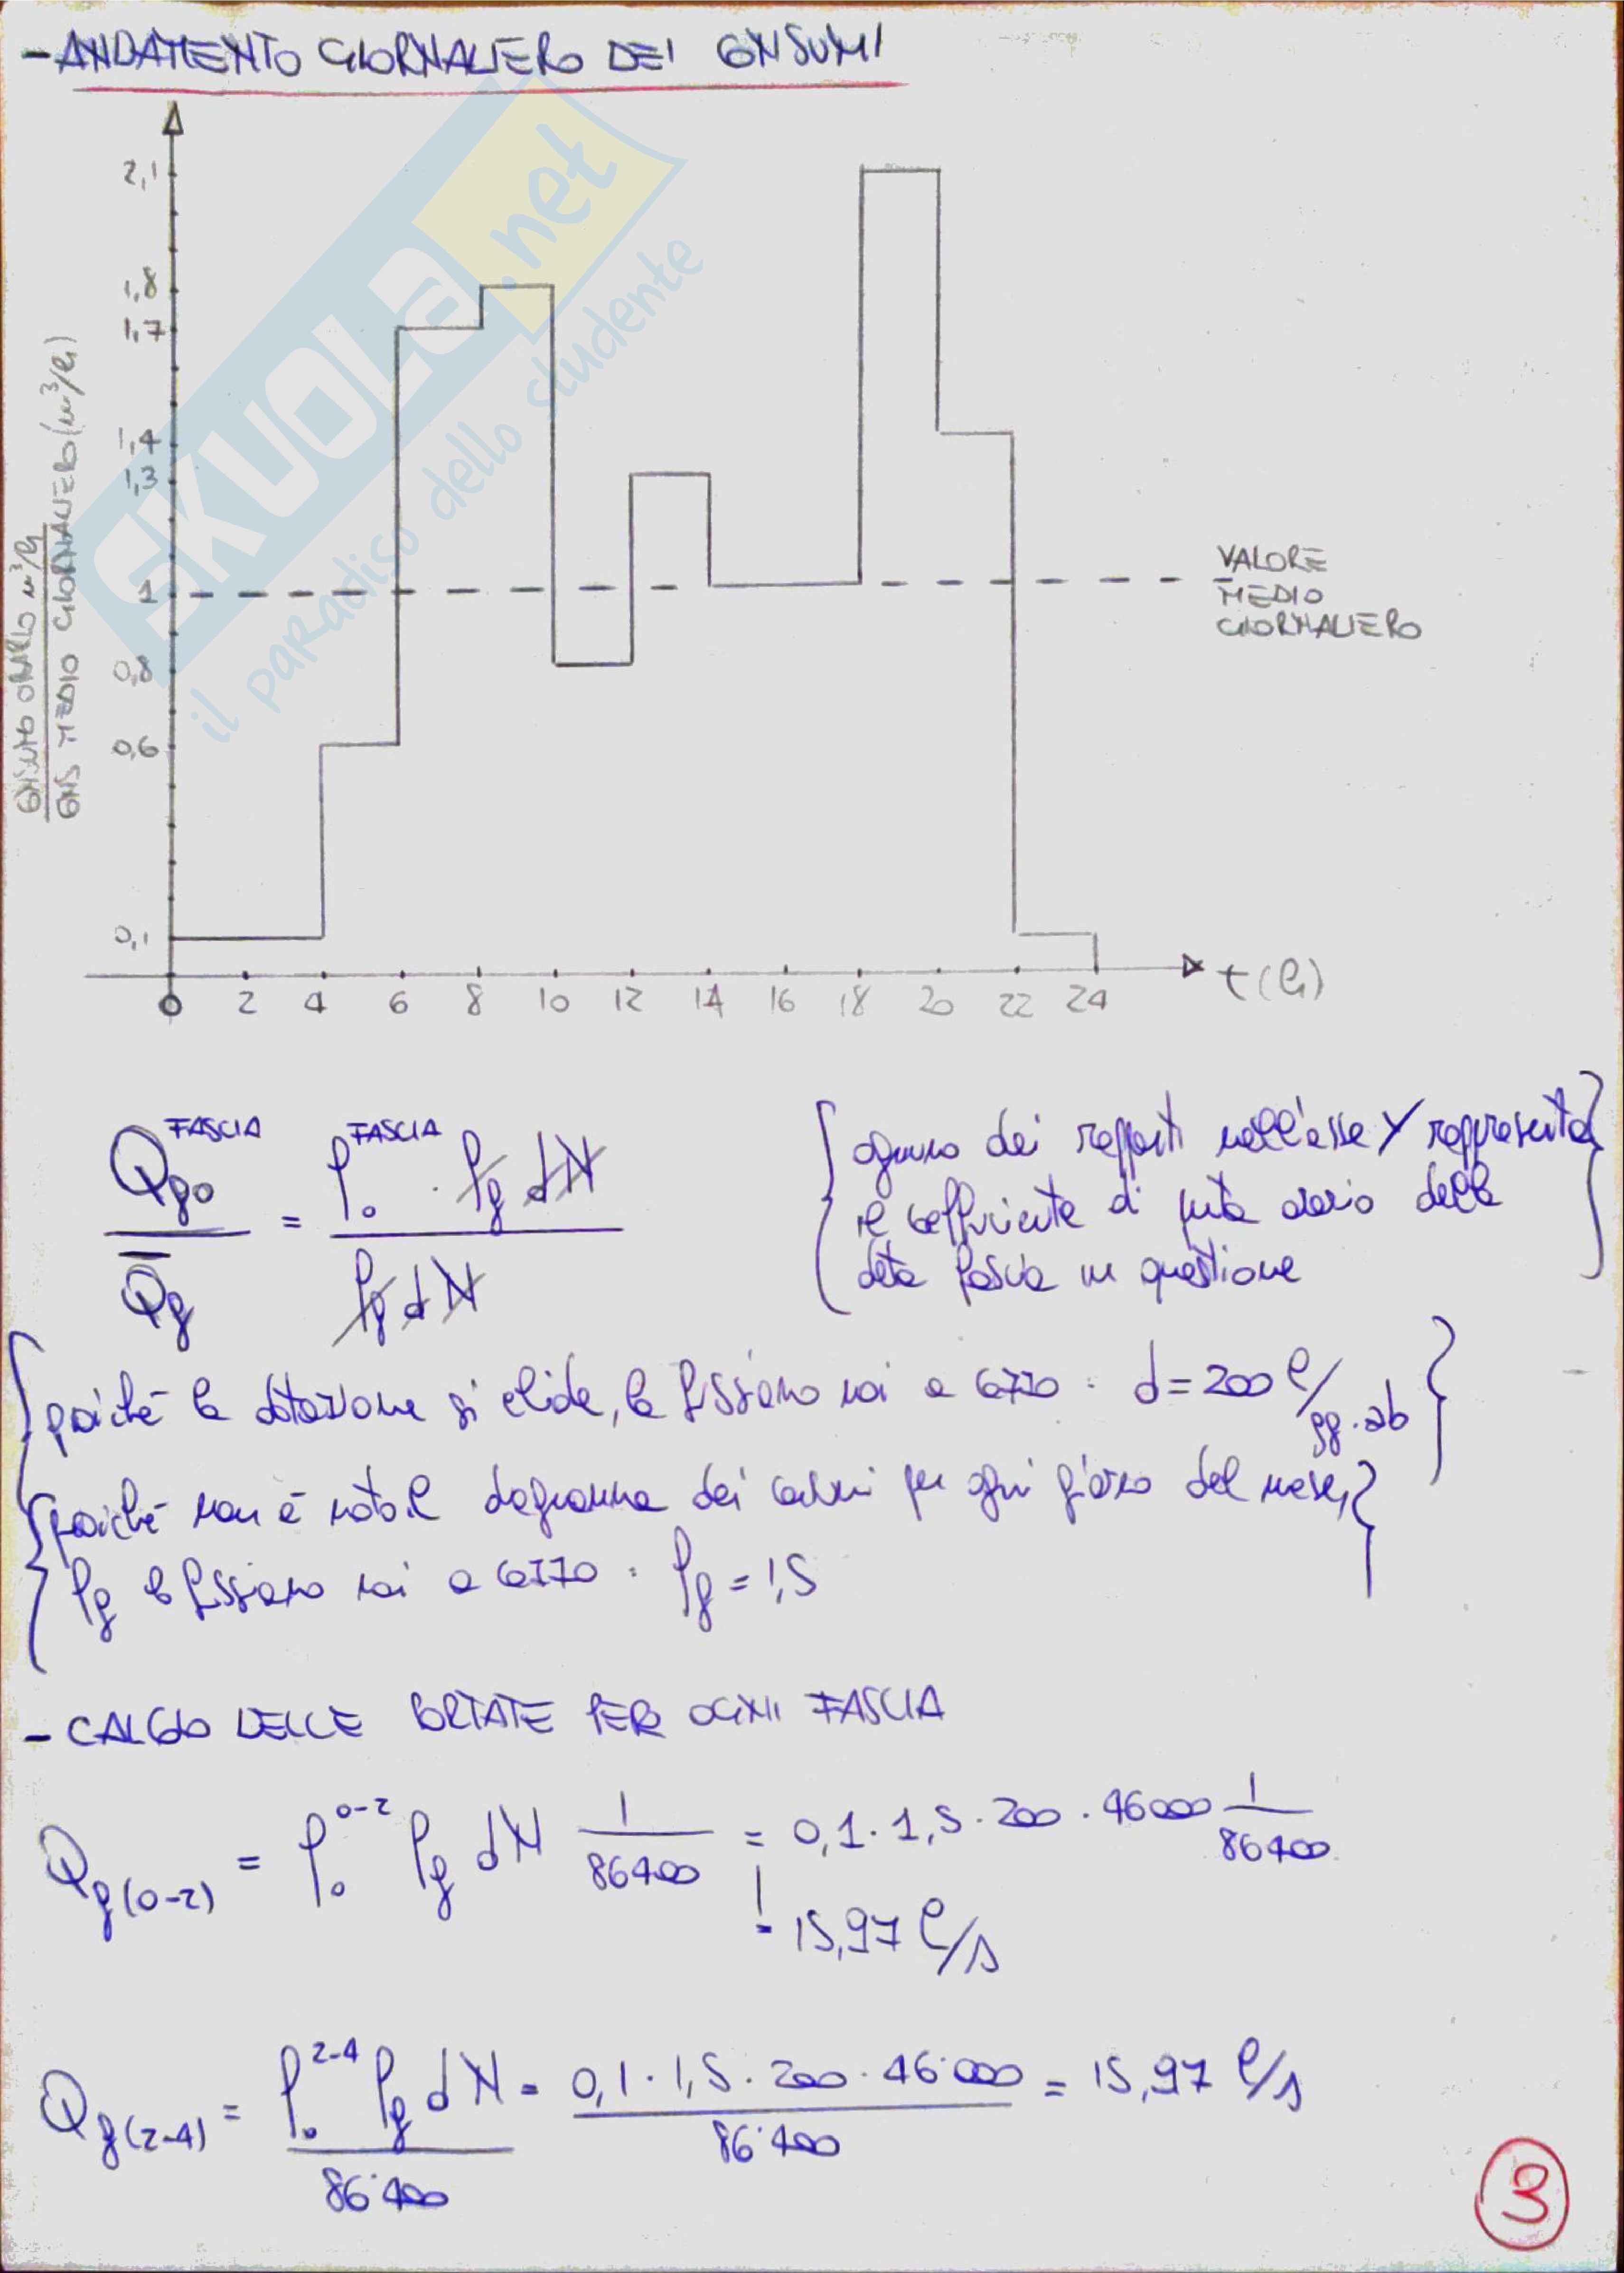 - ANDAMENTO GIORNALIERO DEI CONSUMI
2,1
1,8
1,7
1,4
1,3
1
0,8
0,6
0,1
CONSUMO ORARIO m³/h
CONS MEDIO GIORNALIERO (m³/h)
SKUOLA.net
il paradiso dello studente
VALORE
MEDIO
GIORNALIERO
0 2 4 6 8 10 12 14 16 18 20 22 24 t (h)
Qgo^FASCIA / Q̅g = ρo^FASCIA · ρg dN / ρg dN
{ ognuno dei rapporti nell'asse Y rappresenta
il coefficiente di punta orario della
data fascia in questione }
{ poiché la dotazione si elide, la fissiamo noi a caso · d = 200 l/gg·ab }
{ poiché non è noto il diagramma dei consumi per ogni giorno del mese,
ρg lo fissiamo noi a caso · ρg = 1,5 }
- CALCOLO DELLE PORTATE PER OGNI FASCIA
Qg(0-2) = ρo^0-2 ρg dN 1/86400 = 0,1 · 1,5 · 200 · 46000 1/86400
= 15,97 l/s
Qg(2-4) = ρo^2-4 ρg dN / 86˙400 = 0,1 · 1,5 · 200 · 46˙000 / 86˙400 = 15,97 l/s
3